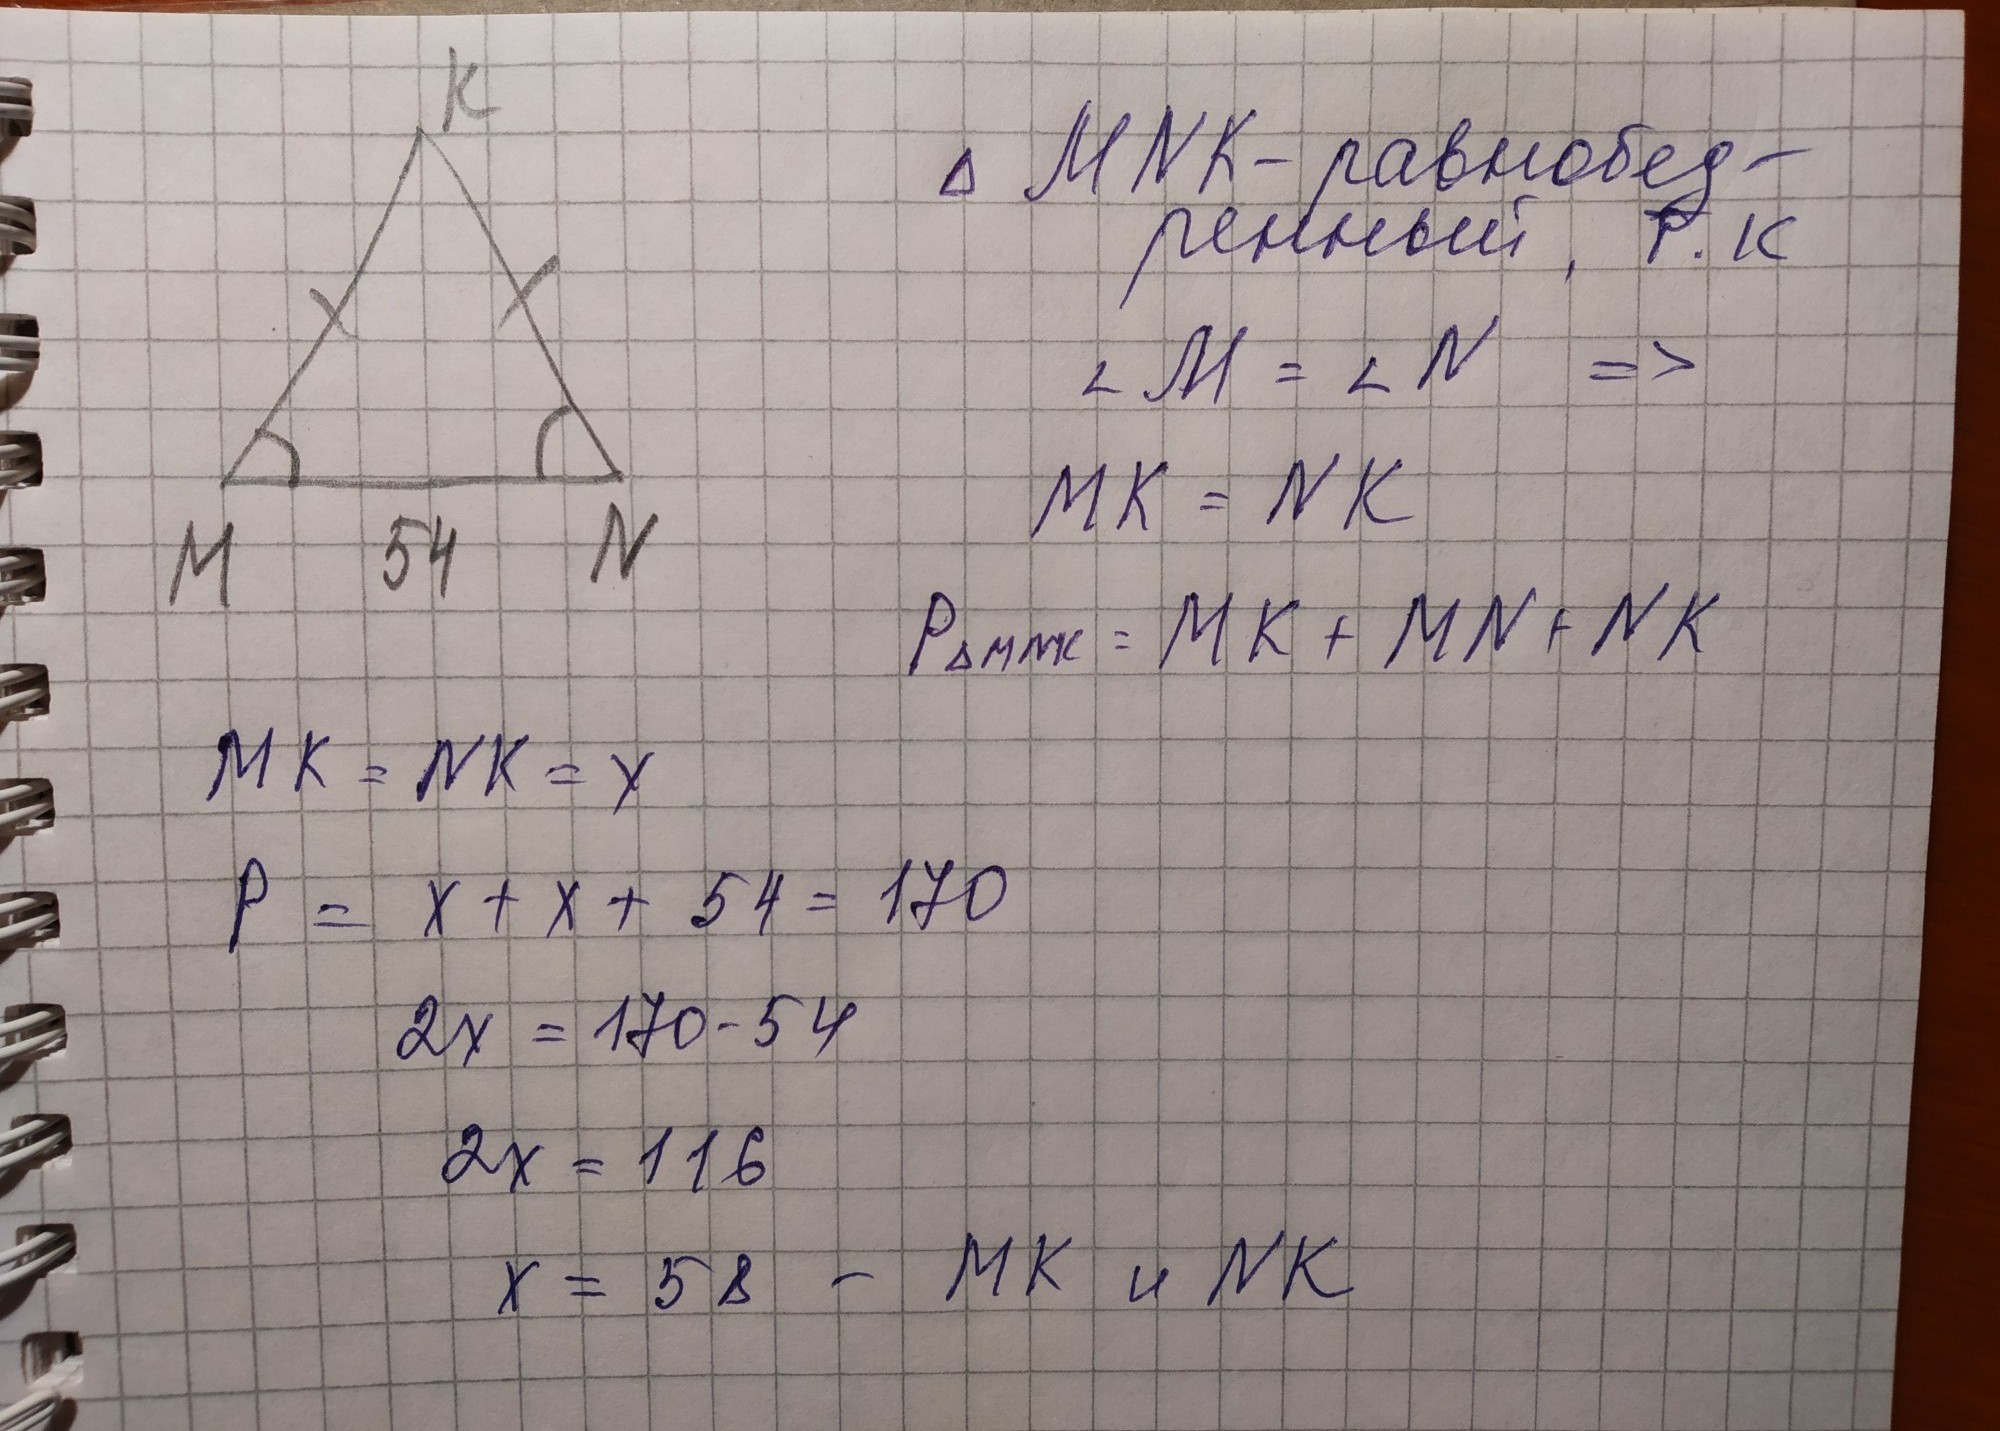 K
M 54 N
△ MNK - равнобед-
ренный, т.к
∠M = ∠N =>
MK = NK
P△MNK = MK + MN + NK
MK = NK = x
P = x + x + 54 = 170
2x = 170 - 54
2x = 116
x = 58 - MK и NK